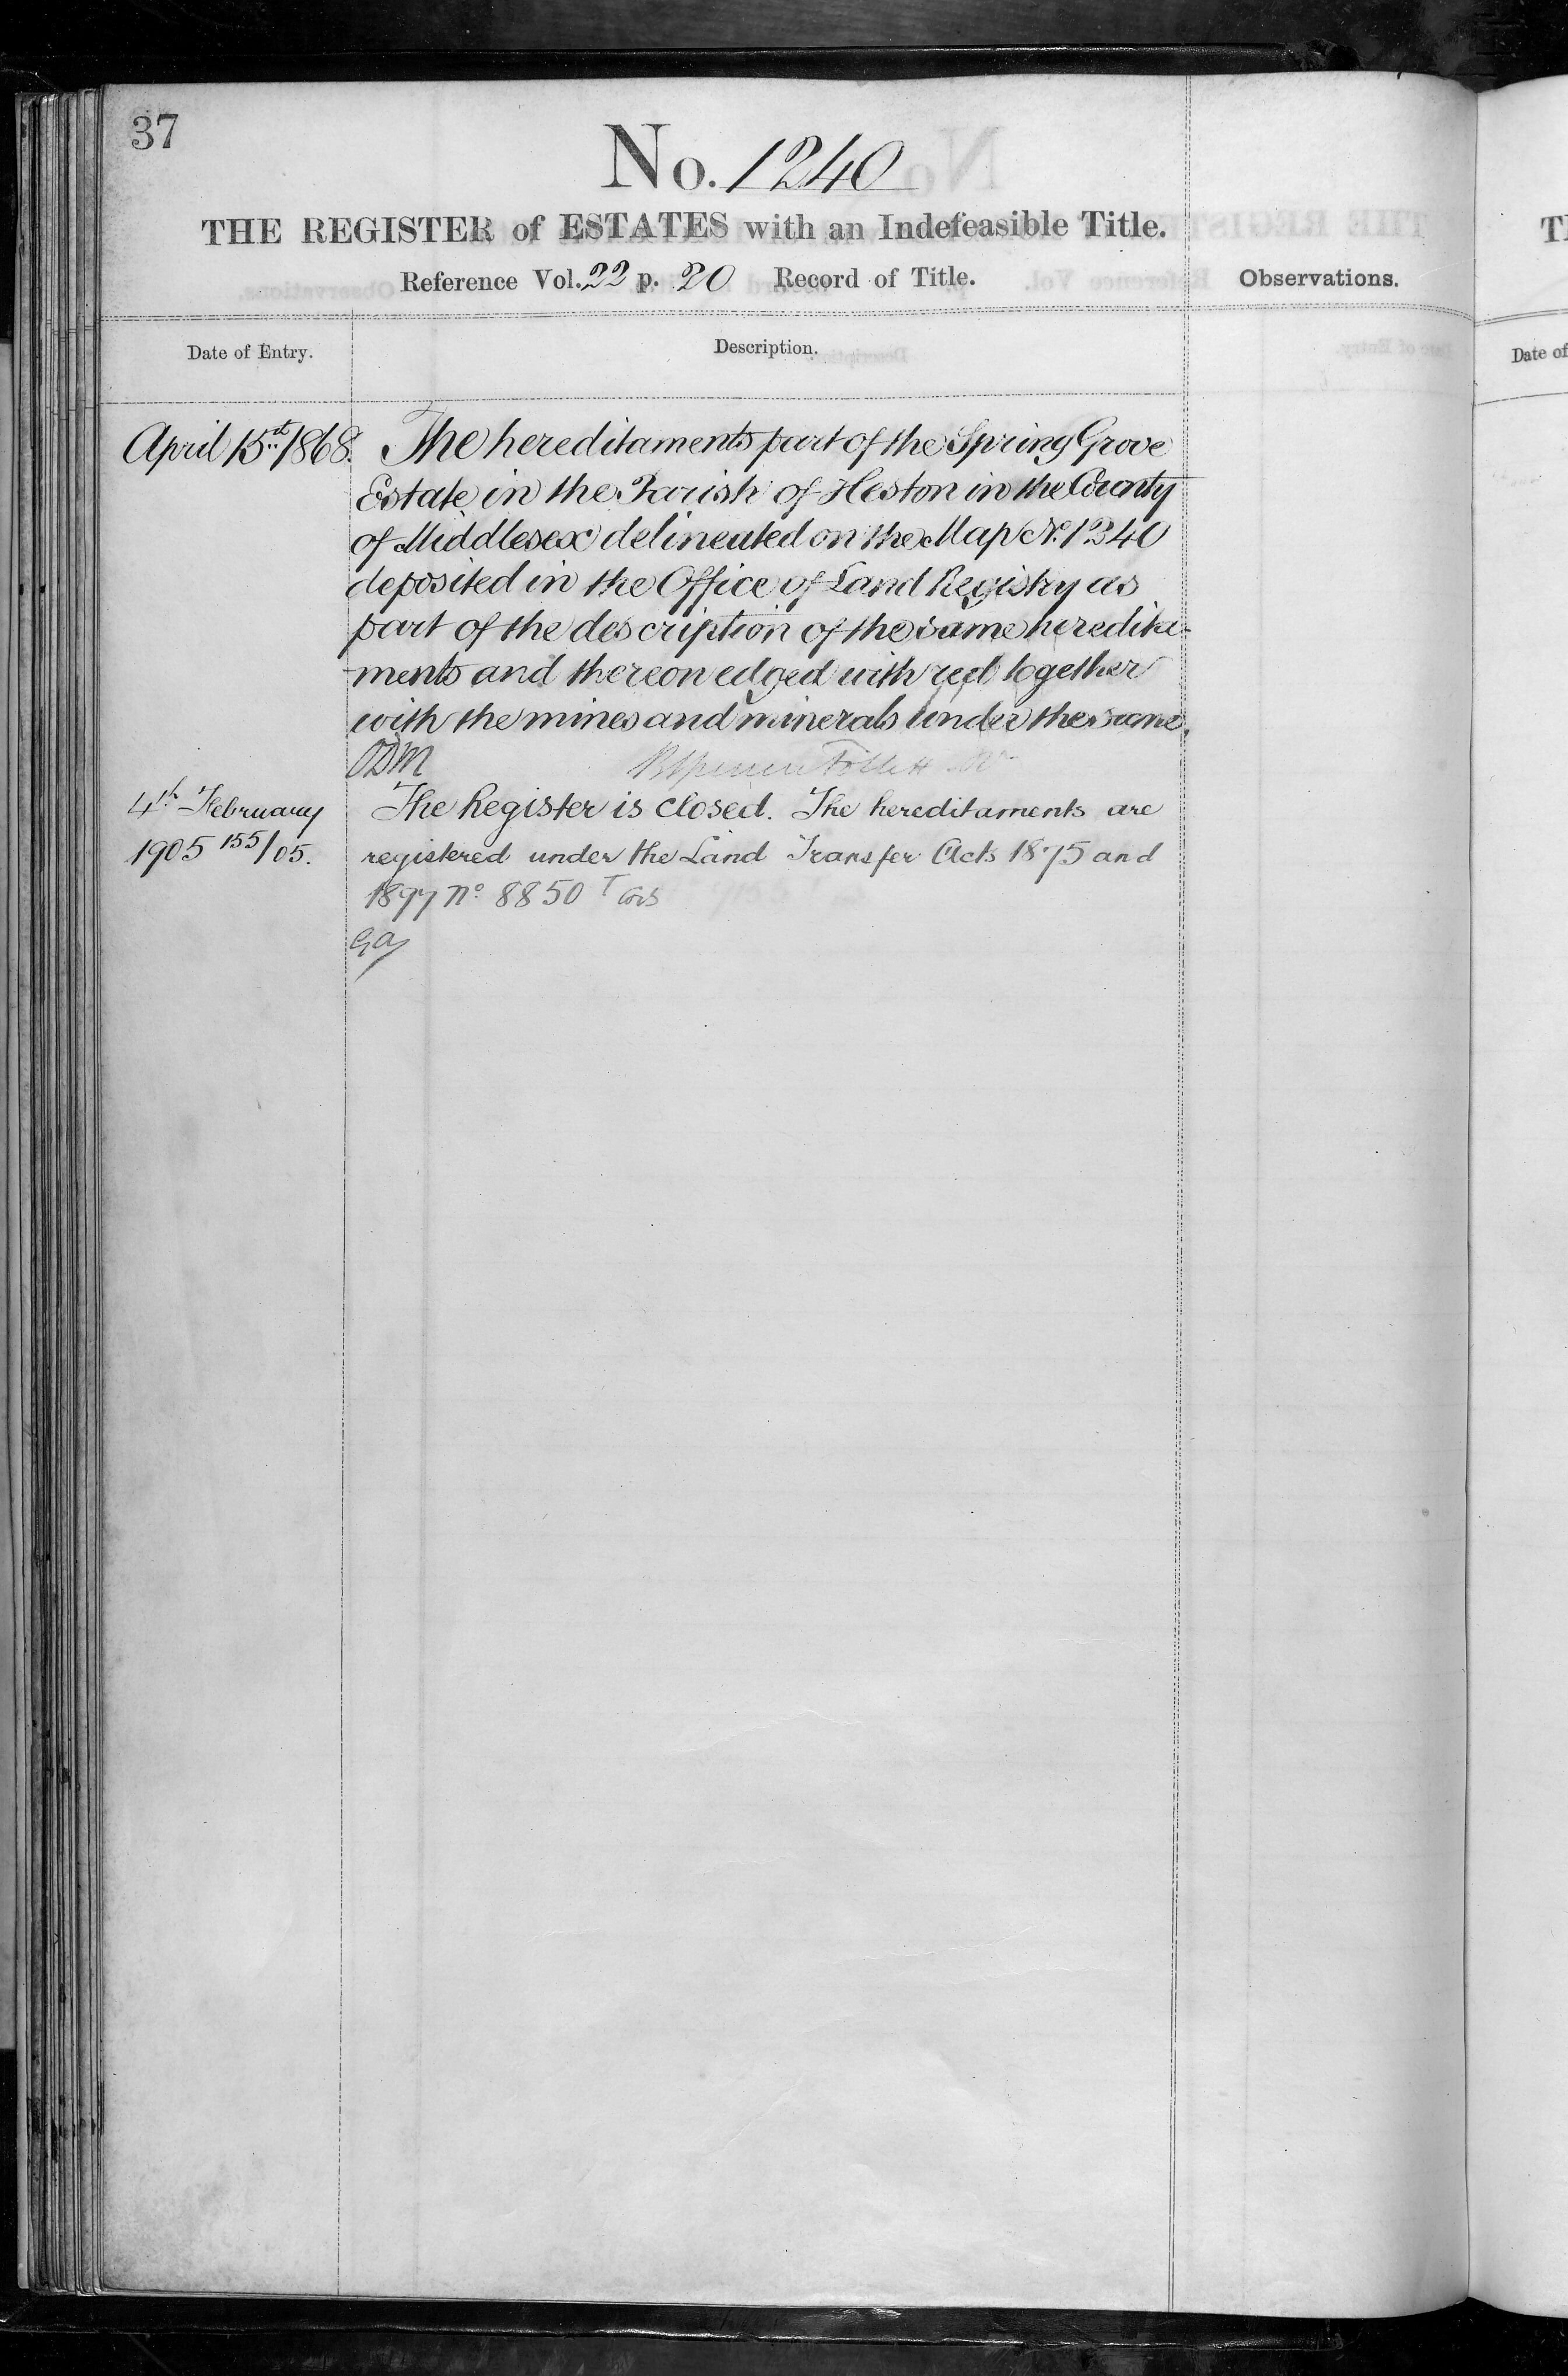 37
No. 1240
THE REGISTER of ESTATES with an Indefeasible Title.
Reference Vol. 22 p. 20 Record of Title.
Observations.
Date of Entry.
Description.
April 15th 1868. The hereditaments part of the Spring Grove
Estate in the Parish of Heston in the County
of Middlesex delineated on the Map No. 1240
deposited in the Office of Land Registry as
part of the description of the same heredita-
ments and thereon edged with red together
with the mines and minerals under the same.
ODM
Follett
4th February The Register is closed. The hereditaments are
1905 155/05. registered under the Land Transfer Acts 1875 and
1897 No. 8850
Date of